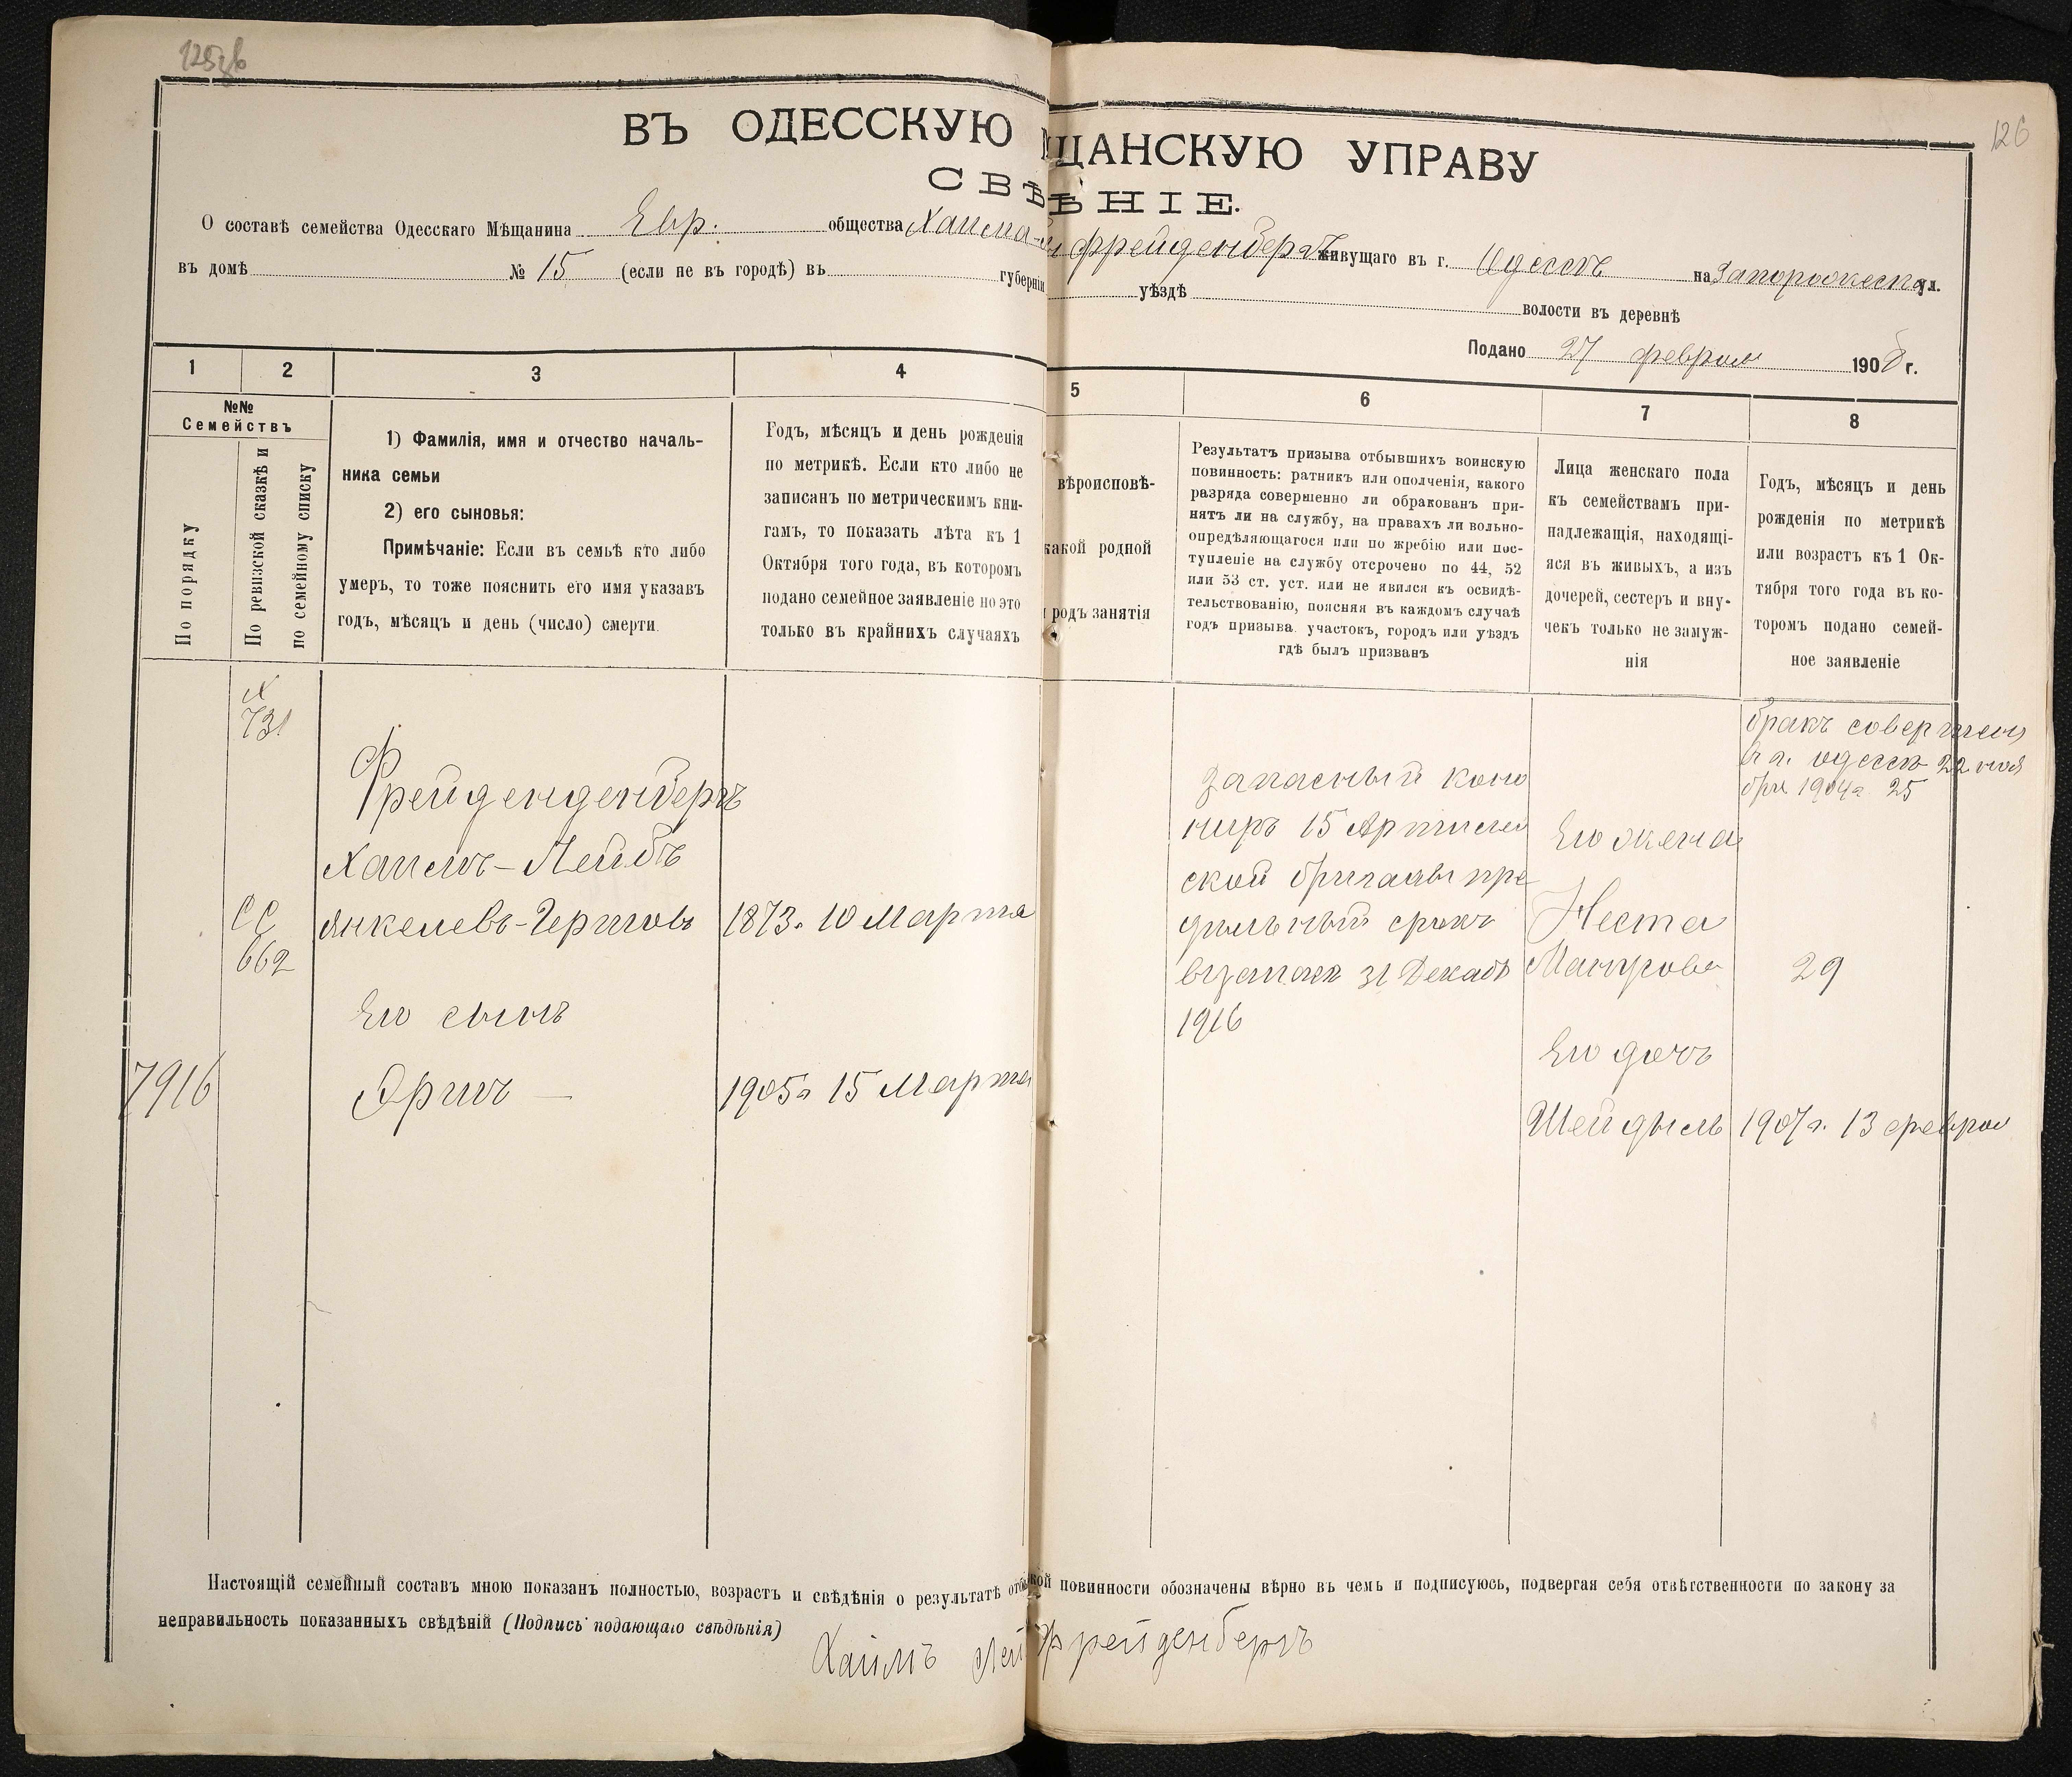 126
ВЪ ОДЕССКУЮ ЩАНСКУЮ УПРАВУ
СВѢ ѢНІЕ.
О составѣ семейства Одесскаго Мѣщанина Евр. общества Хаима- Фрейденбергъ живущаго въ г. Одессѣ на Запорожска ул.
въ домѣ № 15 (если не въ городѣ) въ губерніи уѣздѣ волости въ деревнѣ
Подано 27 феврал 1908 г.
1 2 3 4 5 6 7 8
№№
Семействъ
По порядку
По ревизской сказкѣ и
по семейному списку
1) Фамилія, имя и отчество началь-
ника семьи
2) его сыновья:
Примѣчаніе: Если въ семьѣ кто либо
умеръ, то тоже пояснить его имя указавъ
годъ, мѣсяцъ и день (число) смерти.
Годъ, мѣсяцъ и день рожденія
по метрикѣ. Если кто либо не
записанъ по метрическимъ кни-
гамъ, то показать лѣта къ 1
Октября того года, въ которомъ
подано семейное заявленіе но это
только въ крайнихъ случаяхъ
вѣроисповѣ-
какой родной
родъ занятія
Результатъ призыва отбывшихъ воинскую
повинность: ратникъ или ополченія, какого
разряда совершенно ли обракованъ при-
нятъ ли на службу, на правахъ ли вольно-
опредѣляющагося или по жребію или пос-
тупленіе на службу отсрочено по 44, 52
или 53 ст. уст. или не явился къ освидѣ-
тельствованію, поясняя въ каждомъ случаѣ
годъ призыва участокъ, городъ или уѣздъ
гдѣ былъ призванъ
Лица женскаго пола
къ семействамъ при-
надлежащія, находящі-
яся въ живыхъ, а изъ
дочерей, сестеръ и вну-
чекъ только не замуж-
нія
Годъ, мѣсяцъ и день
рожденія по метрикѣ
или возрастъ къ 1 Ок-
тября того года въ ко-
торомъ подано семей-
ное заявленіе
731
Фрейденденбергъ
Хаимъ-Лейбъ
Янкелевъ-Гершовъ 1873г 10 Марта
СС
662
Его сынъ
7916 Эршъ — 1905г 15 Марта
запасный кано
ниръ 15 Артилле
ской бригады пре
дѣльный срокъ
въ запасѣ 31 Декаб
1916
Его жена
Неста
29
Его дочь
Шейдыль 1907г. 13 феврал
бракъ совершен
въ г. Одессѣ 22 ноя
бря 1904г 25
Настоящій семейный составъ мною показанъ полностью, возрастъ и свѣдѣнія о результатѣ отб кой повинности обозначены вѣрно въ чемъ и подписуюсь, подвергая себя отвѣтственности по закону за
неправильность показанныхъ свѣдѣній (Подпись подающаго свѣдѣнія)
Хаимъ Лей Фрейденбергъ